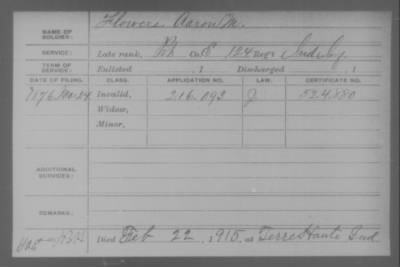 NAME OF SOLDIER: Flowers Aaron M.
SERVICE: Late rank, Pvt Co. 124 Reg't Ind. Inf.
TERM OF SERVICE: Enlisted , 1 Discharged , 1
DATE OF FILING. CLASS. APPLICATION NO. LAW. CERTIFICATE NO.
1876 Invalid, 216.092 524.880
Widow,
Minor,
ADDITIONAL SERVICES:
REMARKS:
Died Feb 22, 1915, at Terre Haute Ind.